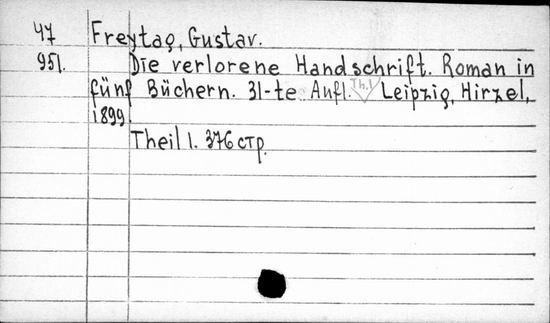 47 Freytag, Gustav.
951. Die verlorene Handschrift. Roman in
fünf Büchern. 31-te Aufl. Th.1 Leipzig, Hirzel,
1899
Theil 1. 376 стр.